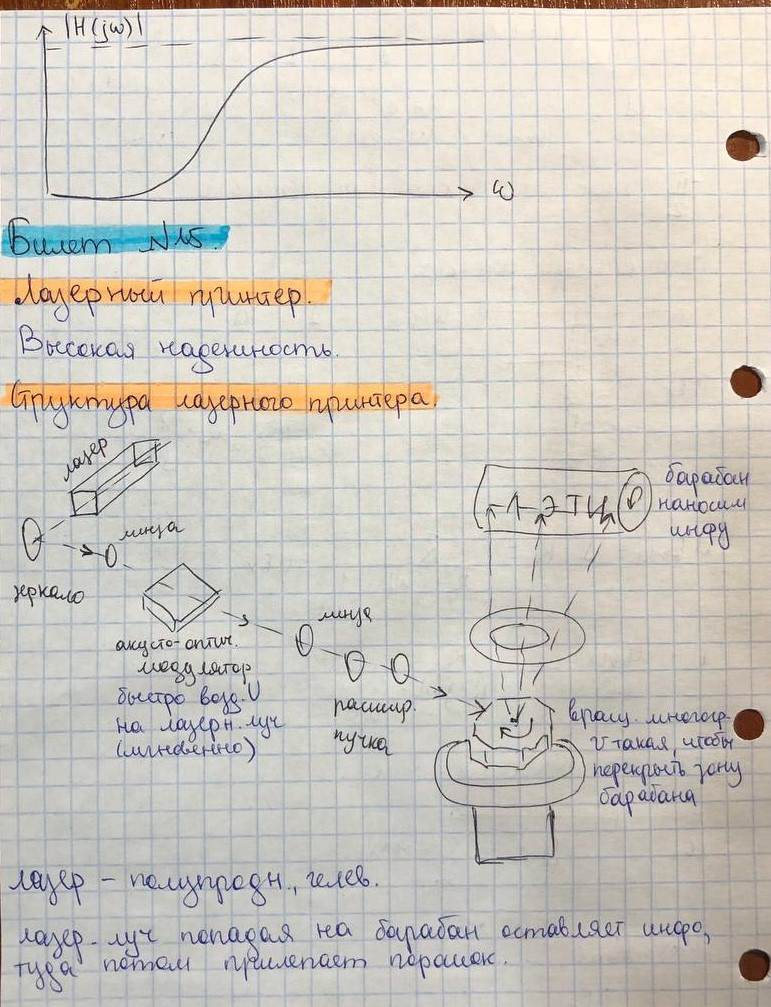 |H(jω)|
ω
Билет №15.
Лазерный принтер.
Высокая надежность.
Структура лазерного принтера.
лазер
барабан
наносим
инфу
линза
зеркало
линза
акусто-оптич.
модулятор
быстро возд.
на лазерн. луч
(мгновенно)
расшир.
пучка
вращ. многогр.
v такая, чтобы
перекрыть зону
барабана
лазер – полупродн., гелев.
лазер. луч попадая на барабан оставляет инфо,
туда потом прилепает порошок.